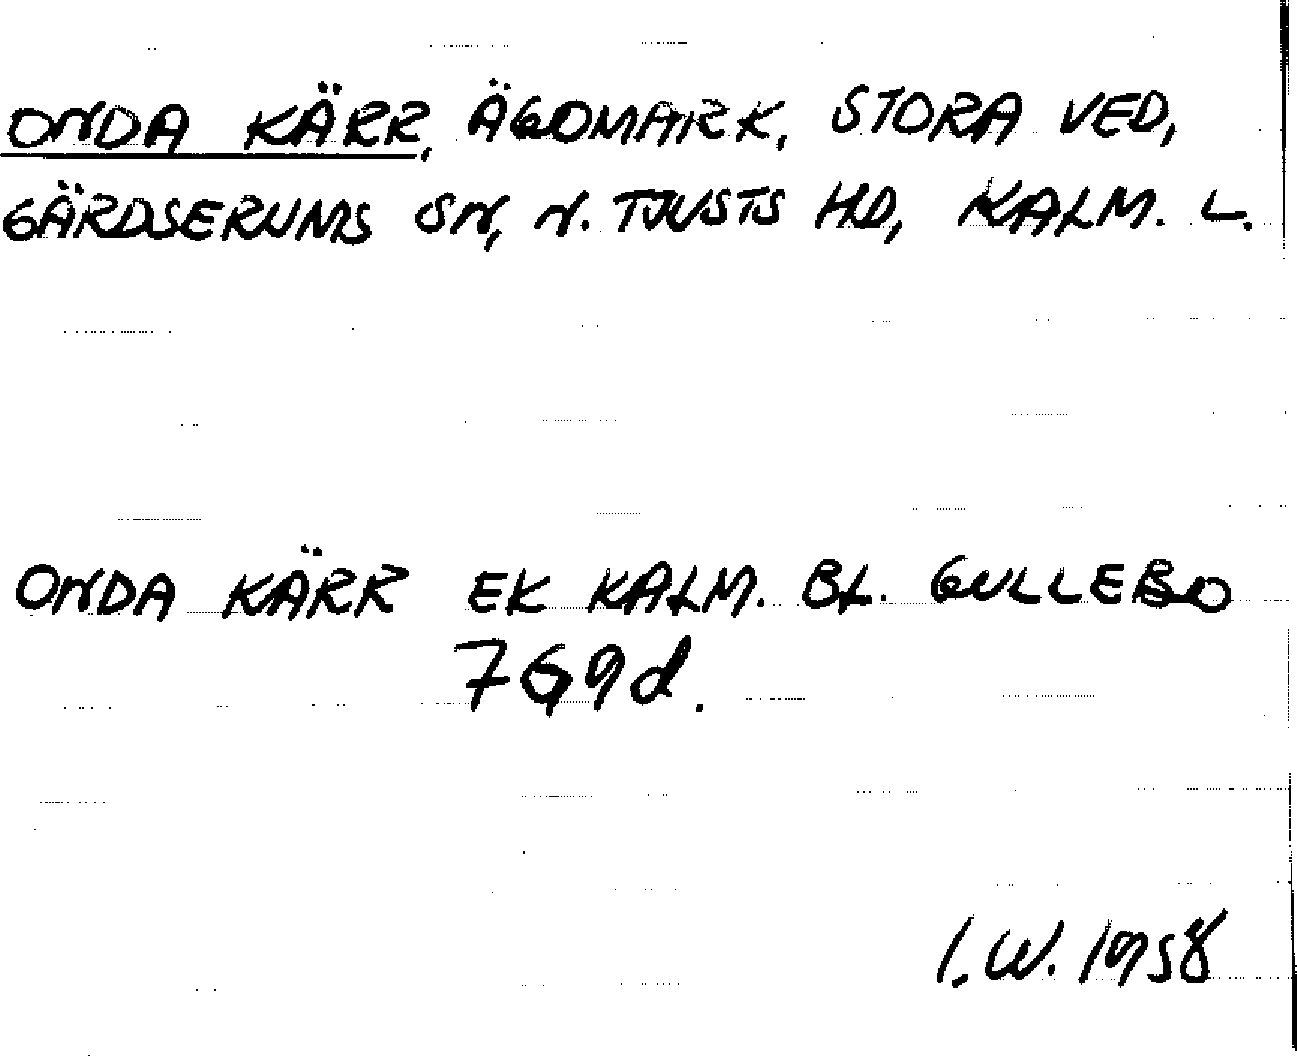 ONDA KÄRR, ÄGOMARK, STORA VED,
GÄRDSERUMS SN, N. TJUSTS HD, KALM. L.
ONDA KÄRR EK KALM. BL. GULLEBO
769d.
I.W. 1958